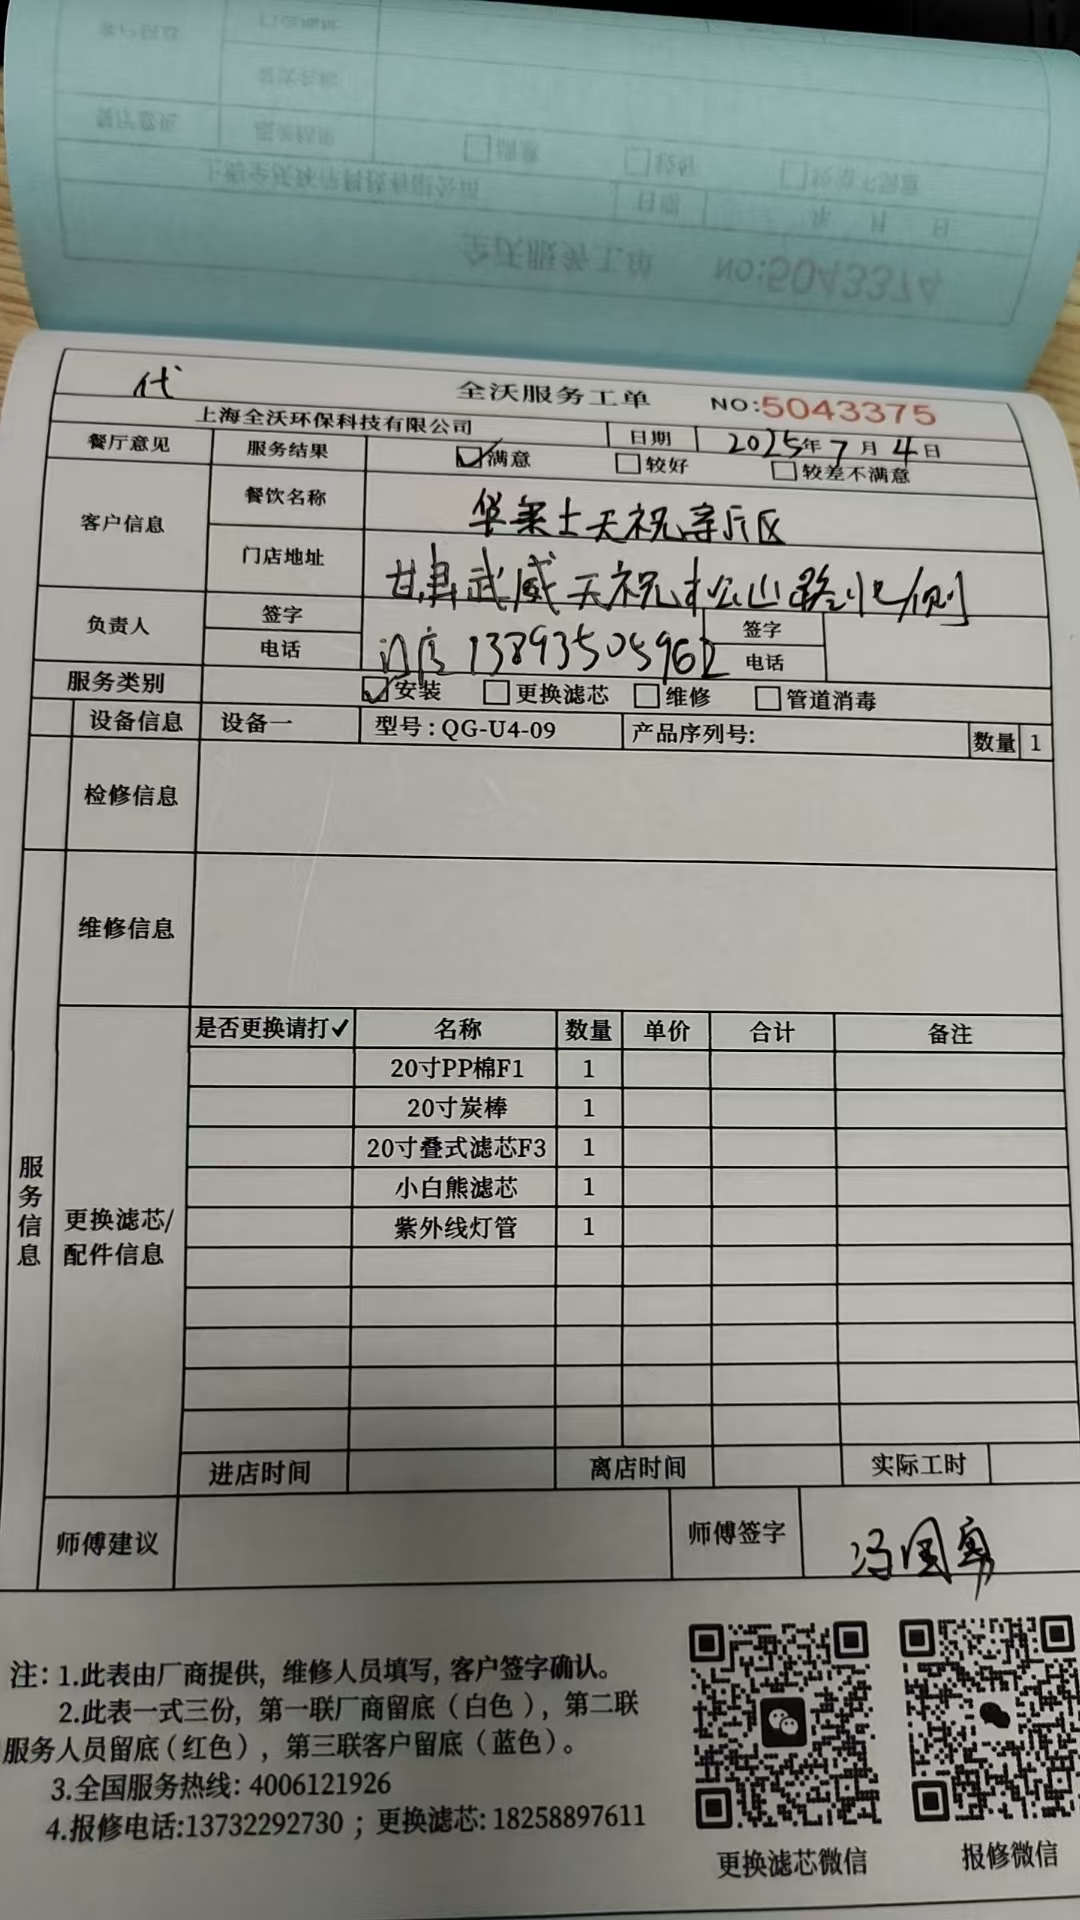 代 全沃服务工单 NO:5043375
上海全沃环保科技有限公司 日期 2025年7月4日
餐厅意见 服务结果 ☑满意 □较好 □较差不满意
客户信息 餐饮名称 华莱士天祝新区
门店地址 甘肃武威天祝松山路北侧
负责人 签字 签字
电话 门店 13893505962 电话
服务类别 ☑安装 □更换滤芯 □维修 □管道消毒
设备信息 设备一 型号:QG-U4-09 产品序列号: 数量 1
检修信息
维修信息
服务信息
更换滤芯/
配件信息
是否更换请打✓ 名称 数量 单价 合计 备注
20寸PP棉F1 1
20寸炭棒 1
20寸叠式滤芯F3 1
小白熊滤芯 1
紫外线灯管 1
进店时间 离店时间 实际工时
师傅建议 师傅签字 冯国
注: 1.此表由厂商提供, 维修人员填写, 客户签字确认。
2.此表一式三份, 第一联厂商留底（白色）, 第二联
服务人员留底（红色）, 第三联客户留底（蓝色）。
3.全国服务热线: 4006121926
4.报修电话:13732292730 ; 更换滤芯: 18258897611
更换滤芯微信 报修微信